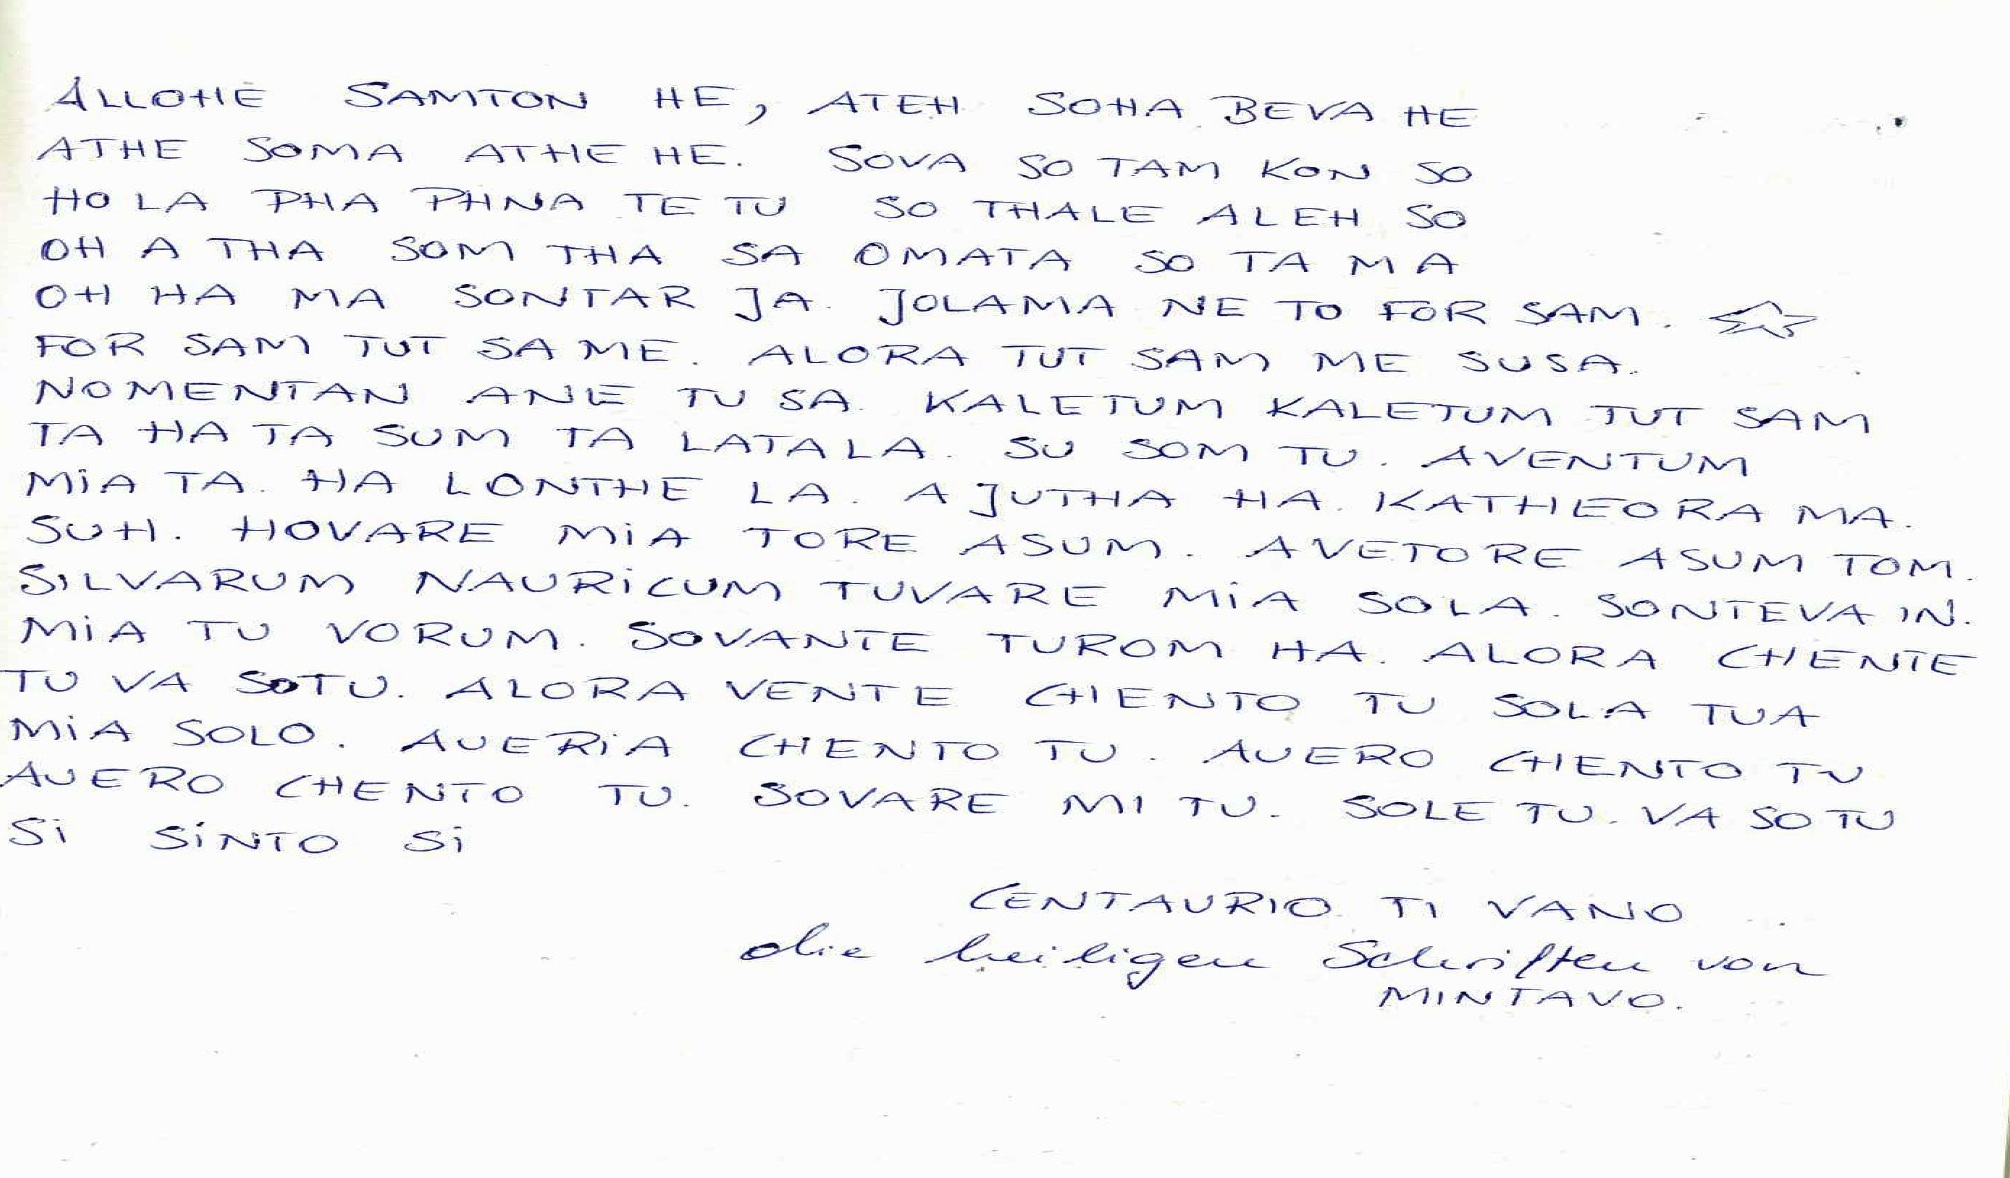 ALLOHE SAMTON HE, ATEH SOHA BEVA HE
ATHE SOMA ATHE HE. SOVA SO TAM KON SO
HO LA PHA PHNA TE TU SO THALE ALEH SO
OH A THA SOM THA SA OMATA SO TA MA
OH HA MA SONTAR JA. JOLAMA NE TO FOR SAM.
FOR SAM TUT SA ME. ALORA TUT SAM ME SUSA.
NOMENTAN ANE TU SA. KALETUM KALETUM TUT SAM
TA HA TA SUM TA LATALA. SU SOM TU. AVENTUM
MIA TA. HA LONTHE LA. AJUTHA HA. KATHEORA MA.
SUH. HOVARE MIA TORE ASUM. AVETORE ASUM TOM.
SILVARUM NAURICUM TUVARE MIA SOLA. SONTEVA IN.
MIA TU VORUM. SOVANTE TUROM HA. ALORA CHENTE
TU VA SOTU. ALORA VENTE CHENTO TU SOLA TUA
MIA SOLO. AUERIA CHENTO TU. AUERO CHENTO TU
AUERO CHENTO TU. SOVARE MI TU. SOLE TU. VA SO TU
SI SINTO SI
CENTAURIO TI VANO
die heiligen Schriften von
MINTAVO.